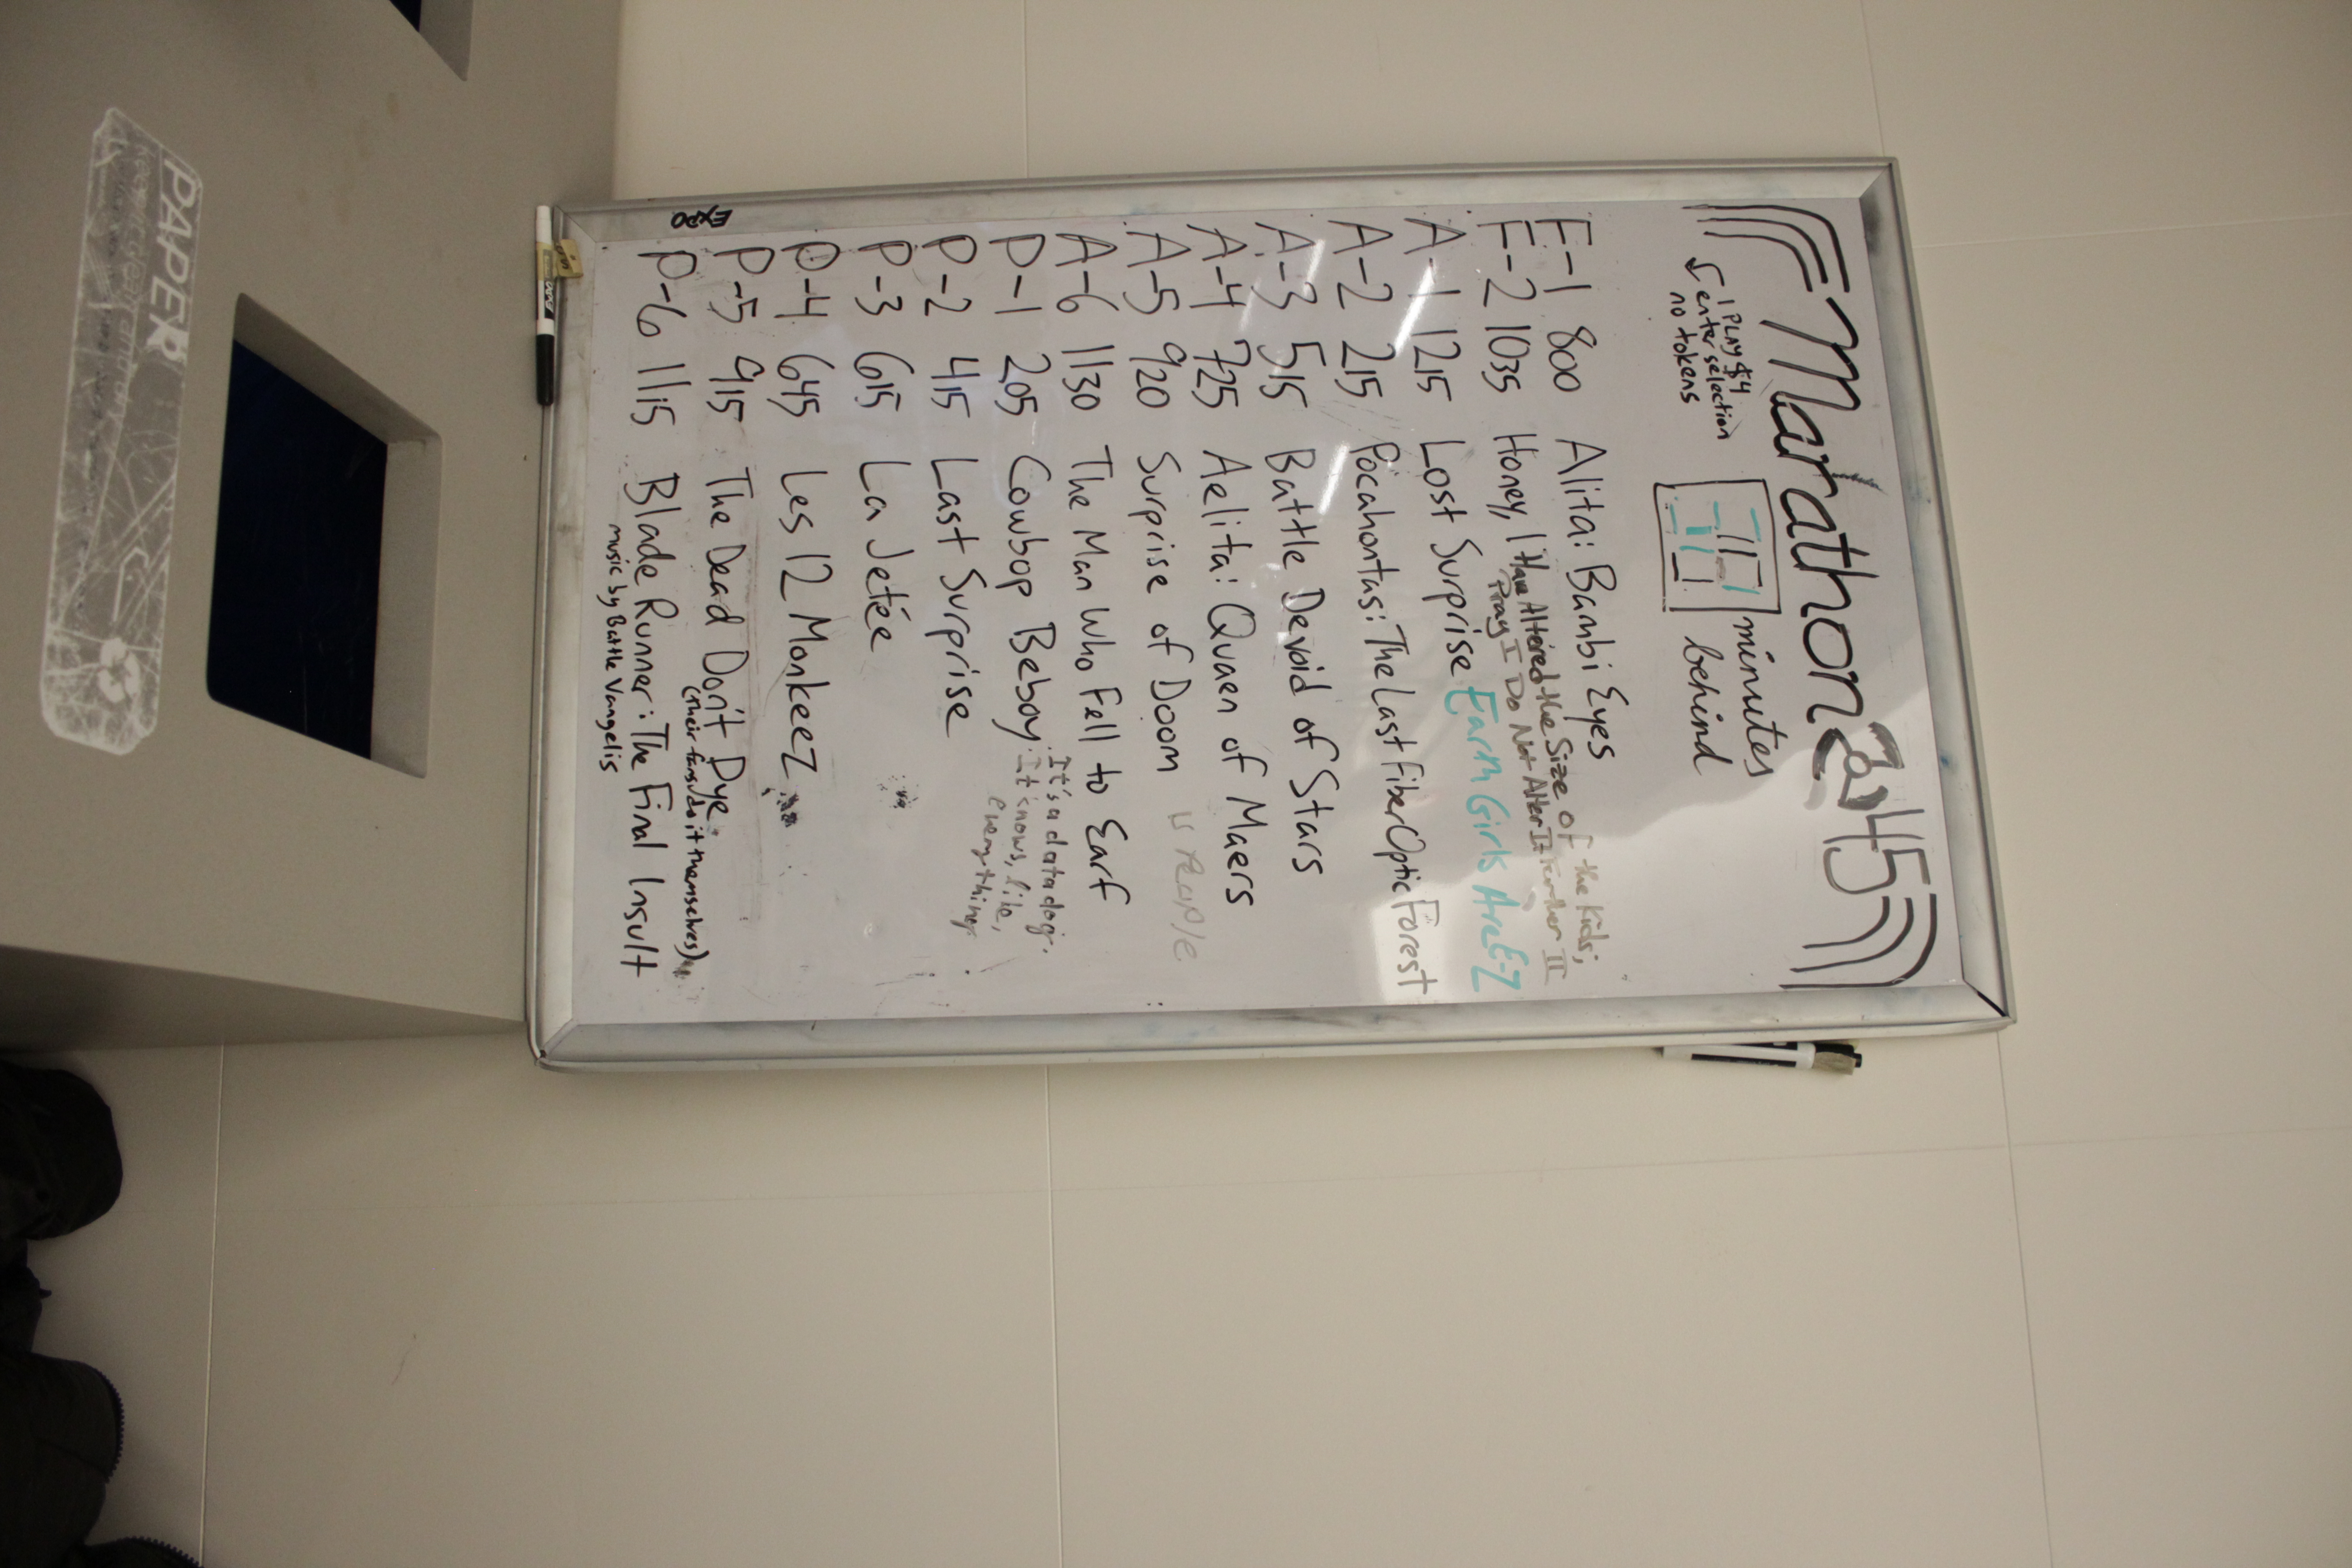 Marathon 2045
1 PLAY $4
enter selection
no tokens
minutes
behind
F-1 800 Alita: Bambi Eyes
F-2 1035 Honey, I Have Altered the Size of the Kids;
Pray I Do Not Alter It Further II
A-1 1215 Lost Surprise Earth Girls Are E-Z
A-2 215 Pocahontas: The Last Fiber Optic Forest
A-3 515 Battle Devoid of Stars
A-4 725 Aelita: Quaen of Maers
A-5 920 Surprise of Doom is people
A-6 1130 The Man Who Fell to Earf
P-1 205 Cowbop Beboy: It's a data dog.
It knows, like,
everything
P-2 415 Last Surprise
P-3 615 La Jetée
P-4 645 Les 12 MonkeeZ
P-5 915 The Dead Don't Dye
(their fans do it themselves)
P-6 1115 Blade Runner: The Final Insult
music by Battle Vangelis
EXPO
PAPER